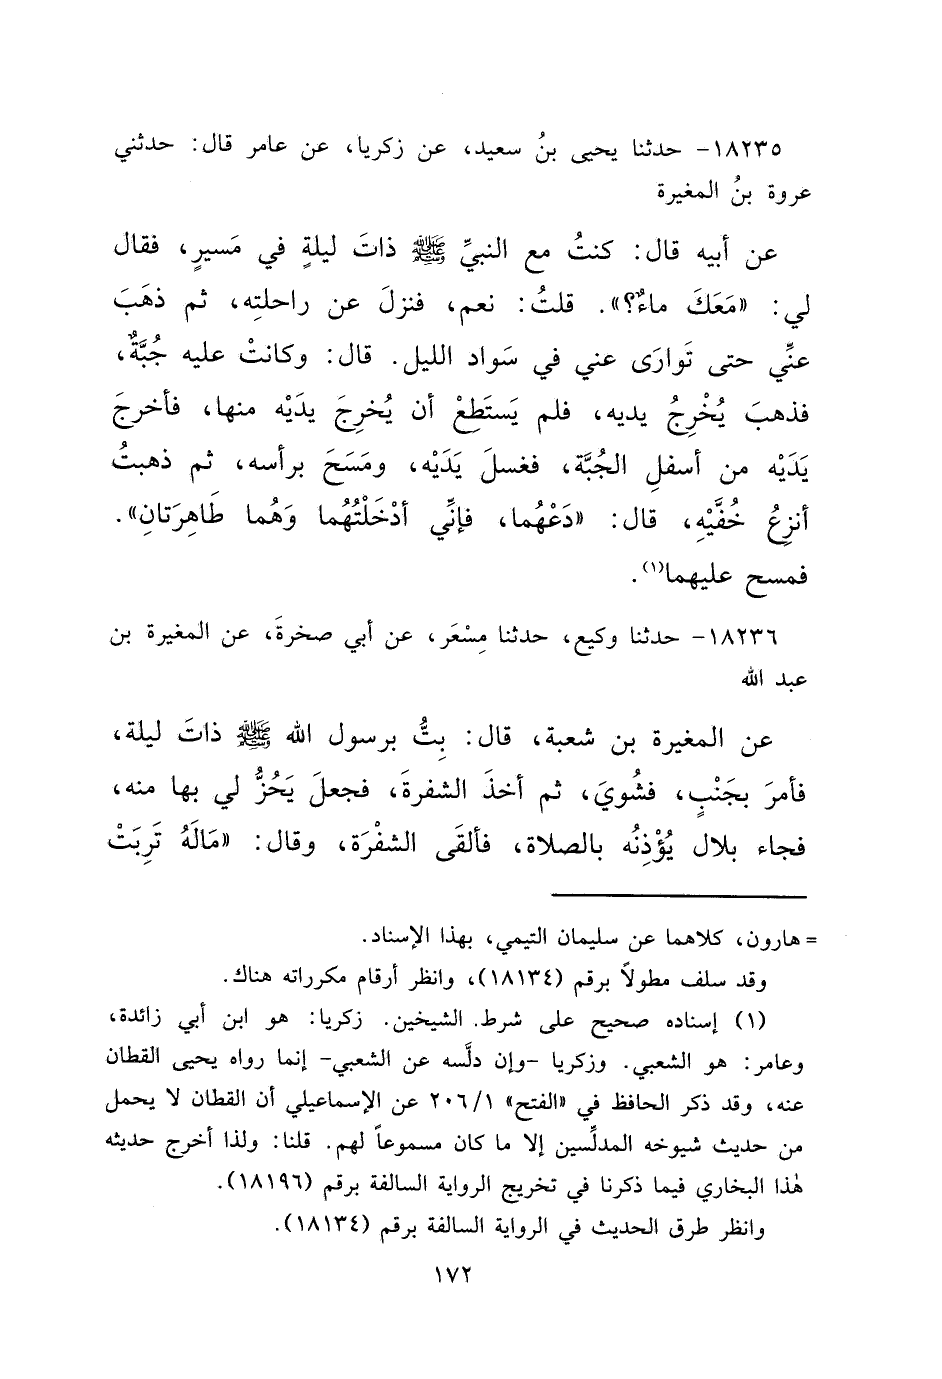 ١٨٢٣٥- حدثنا يحيى بنُ سعيد، عن زكريا، عن عامر قال: حدثني
عروة بنُ المغيرة
عن أبيه قال: كنتُ مع النبيِّ ﷺ ذاتَ ليلةٍ في مَسيرٍ، فقال
لي: «مَعَكَ ماءٌ؟». قلتُ: نعم، فنزلَ عن راحلتِه، ثم ذهَبَ
عنِّي حتى تَوارَى عني في سَواد الليل. قال: وكانتْ عليه جُبَّةٌ،
فذهبَ يُخْرِجُ يديه، فلم يَستَطِعْ أن يُخرِجَ يدَيْه منها، فأخرجَ
يَدَيْه من أسفلِ الجُبَّة، فغسلَ يَدَيْه، ومَسَحَ برأسه، ثم ذهبتُ
أنزِعُ خُفَّيْهِ، قال: «دَعْهُما، فإنِّي أدْخَلْتُهُما وَهُما طَاهِرَتانِ».
فمسح عليهما(١).
١٨٢٣٦- حدثنا وكيع، حدثنا مِسْعَر، عن أبي صخرةَ، عن المغيرة بن
عبد الله
عن المغيرة بن شعبة، قال: بِتُّ برسول الله ﷺ ذاتَ ليلة،
فأمرَ بجَنْبٍ، فشُويَ، ثم أخذَ الشفرةَ، فجعلَ يَحُزُّ لي بها منه،
فجاء بلال يُؤْذِنُه بالصلاة، فألقَى الشفْرَة، وقال: «مَالَهُ تَرِبَتْ
= هارون، كلاهما عن سليمان التيمي، بهذا الإسناد.
وقد سلف مطولاً برقم (١٨١٣٤)، وانظر أرقام مكرراته هناك.
(١) إسناده صحيح على شرط. الشيخين. زكريا: هو ابن أبي زائدة،
وعامر: هو الشعبي. وزكريا -وإن دلَّسه عن الشعبي- إنما رواه يحيى القطان
عنه، وقد ذكر الحافظ في «الفتح» ٢٠٦/١ عن الإسماعيلي أن القطان لا يحمل
من حديث شيوخه المدلِّسين إلا ما كان مسموعاً لهم. قلنا: ولذا أخرج حديثه
هٰذا البخاري فيما ذكرنا في تخريج الرواية السالفة برقم (١٨١٩٦).
وانظر طرق الحديث في الرواية السالفة برقم (١٨١٣٤).
١٧٢